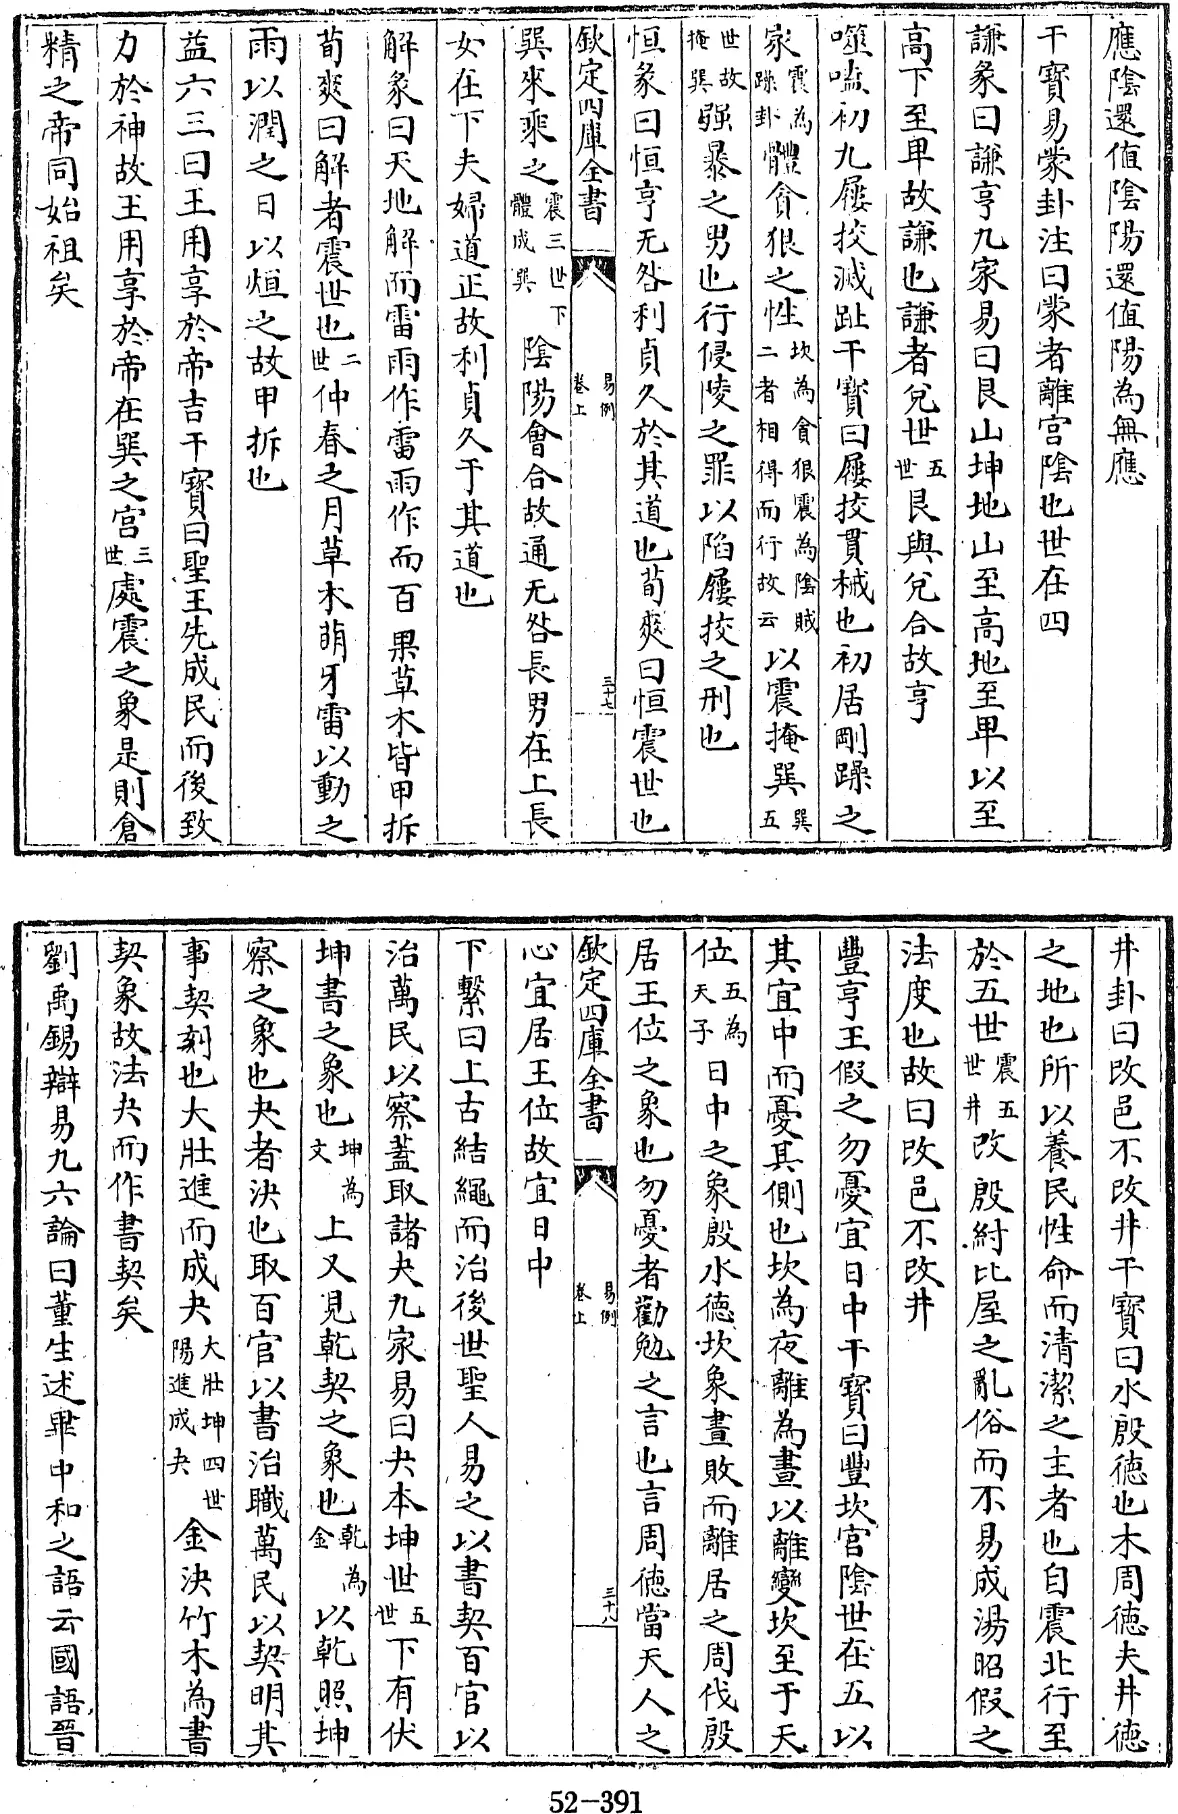 應隂還值隂陽還值陽為無應
干寶易蒙卦注曰蒙者離宫隂也世在四
謙彖曰謙亨九家易曰艮山坤地山至高地至卑以至
高下至卑故謙也謙者兌世五世艮與兌合故亨
噬嗑初九屨挍滅趾干寶曰屨挍貫械也初居剛躁之
家震為躁卦體貪狠之性坎為貪狠震為隂賊二者相得而行故云以震掩巽巽五
世故掩巽强暴之男也行侵陵之罪以陷屨挍之刑也
恒彖曰恒亨无咎利貞久於其道也荀爽曰恒震世也
欽定四庫全書
易例
卷上
三十七
巽來乘之震三世下體成巽隂陽會合故通无咎長男在上長
女在下夫婦道正故利貞久于其道也
解彖曰天地解而雷雨作雷雨作而百果草木皆甲拆
荀爽曰解者震世也二世仲春之月草木萌牙雷以動之
雨以潤之日以烜之故甲拆也
益六二曰王用享於帝吉干寶曰聖王先成民而後致
力於神故王用享於帝在巽之宫三世處震之象是則倉
精之帝同始祖矣
井卦曰改邑不改井干寶曰水殷德也木周德夫井德
之地也所以養民性命而清潔之主者也自震北行至
於五世震五世井改殷紂比屋之亂俗而不易成湯昭假之
法度也故曰改邑不改井
豐亨王假之勿憂宜日中干寶曰豐坎宫隂世在五以
其宜中而憂其側也坎為夜離為晝以離變坎至于天
位五為天子日中之象殷水德坎象晝敗而離居之周伐殷
居王位之象也勿憂者勸勉之言也言周德當天人之
欽定四庫全書
易例
卷上
三十八
心宜居王位故宜日中
下繫曰上古結繩而治後世聖人易之以書契百官以
治萬民以察蓋取諸夬九家易曰夬本坤世五世下有伏
坤書之象也坤為文上又見乾契之象也乾為金以乾照坤
察之象也夬者決也取百官以書治職萬民以契明其
事契刻也大壯進而成夬大壯坤四世陽進成夬金決竹木為書
契象故法夬而作書契矣
劉禹錫辯易九六論曰董生述畢中和之語云國語晉
52-391